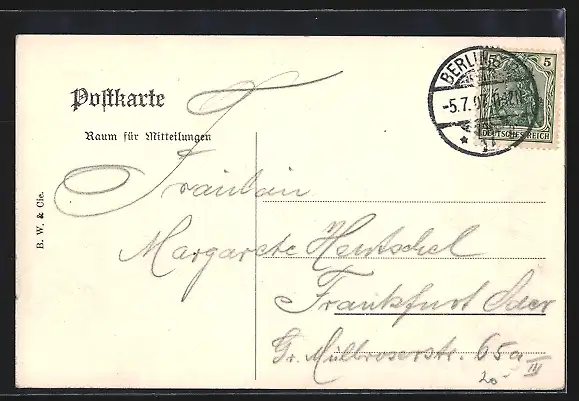 Postkarte
Raum für Mitteilungen
B. W. & Cie.
BERLIN
-5.7.07.
5
DEUTSCHES REICH
Fräulein
Margarete Hentschel
Frankfurt Oder
Gr. Müllroserstr. 65a III
20-